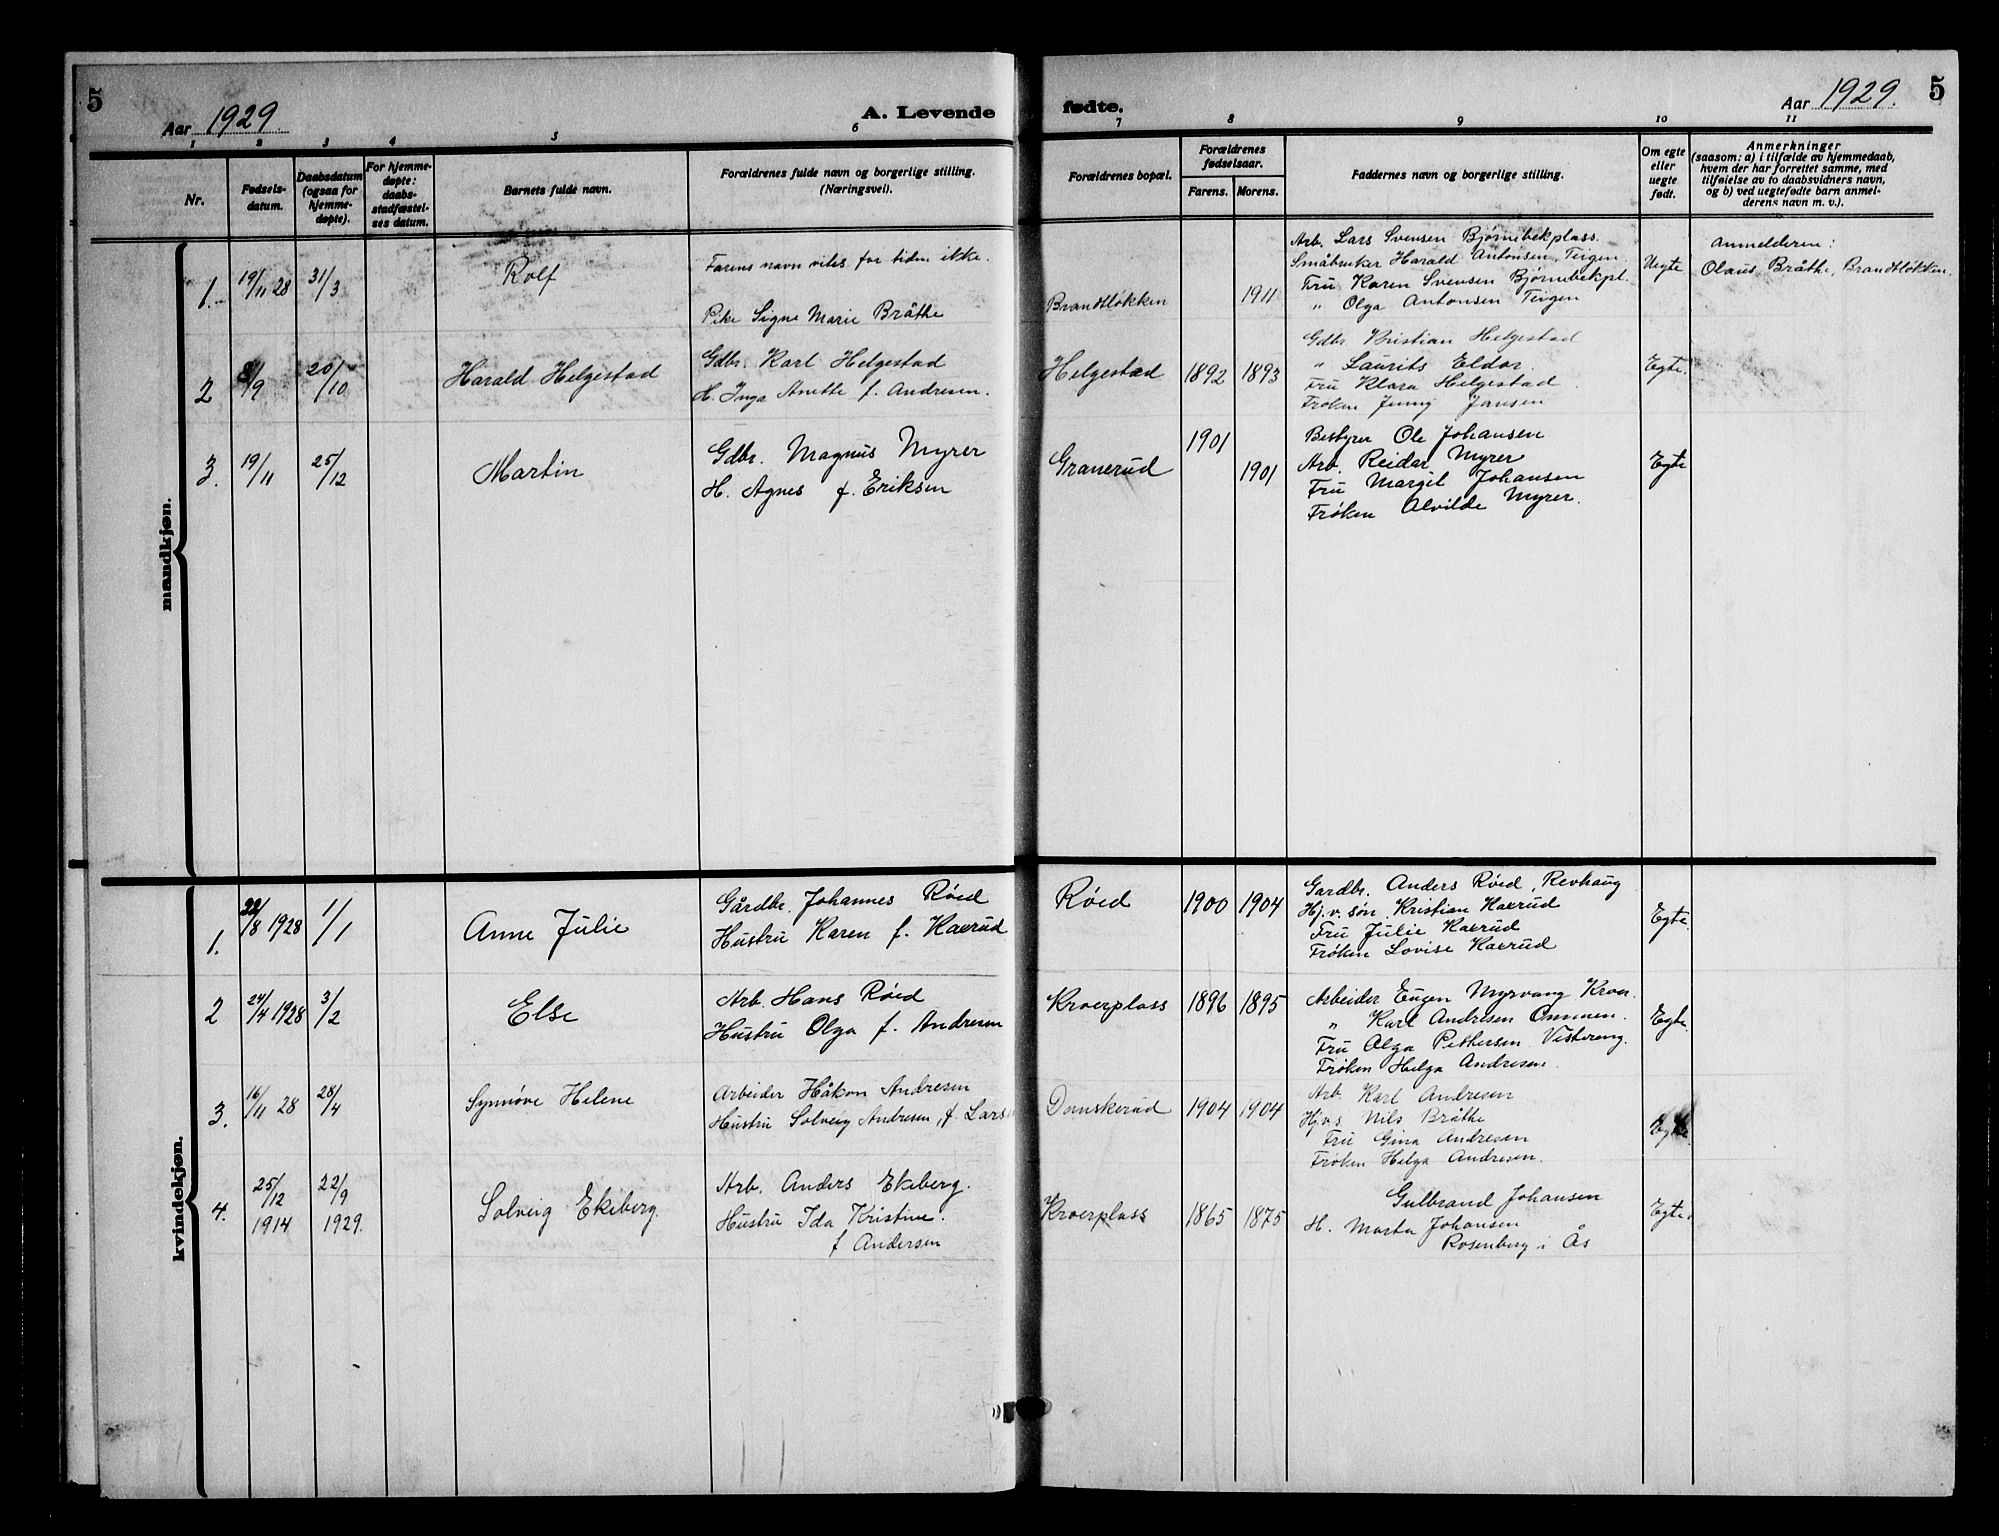 5
Aar 1929
A. Levende
fødte.
Aar 1929.
5
1 2 3 4 5 6 7 8 9 10 11
Nr.
Fødsels-
datum.
Daabsdatum
(ogsaa for
hjemme-
døpte).
For hjemme-
døpte:
daabs-
stadfæstel-
ses datum.
Barnets fulde navn.
Forældrenes fulde navn og borgerlige stilling.
(Næringsvei).
Forældrenes bopæl.
Forældrenes
fødselsaar.
Farens.
Morens.
Faddernes navn og borgerlige stilling.
Om egte
eller
uegte
født.
Anmerkninger
(saasom: a) i tilfælde av hjemmedaab,
hvem der har forrettet samme, med
tilføielse av to daabsvidners navn,
og b) ved uegtefødte barn anmel-
derens navn m. v.).
mandkjøn.
1. 19/11 28 31/3 Rolf
Farens navn vites for tiden ikke.
Pike Signe Marie Bråthe
Brandtløkken 1911
Arb. Lars Svensen Bjørnebekplass.
Småbruker Harald Antonsen, Teigen
Fru Karen Svensen Bjørnebekpl.
" Olga Antonsen Teigen
Uegte
Anmelderen:
Olaus Bråthe, Brandtløkken.
2 8/9 20/10 Harald Helgestad
Gdbr. Karl Helgestad
H. Inga Anette f. Andresen.
Helgestad 1892 1893
Gdbr. Kristian Helgestad
" Laurits Eldor.
Fru Klara Helgestad
Frøken Jenny Jansen
Egte.
3. 19/11 25/12 Martin
Gdbr. Magnus Myrer
H. Agnes f. Eriksen
Granerud 1901 1901
Bestyrer Ole Johansen
Arb. Reidar Myrer
Fru Margit Johansen
Frøken Alvilde Myrer.
Egte
kvindekjøn.
1. 22/8 1928 1/1 Anne Julie
Gårdbr. Johannes Røed
Hustru Karen f. Haxrud
Røed 1900 1904
Gardbr. Anders Røed, Revhaug
Hj.v. søn. Kristian Haxrud
Fru Julie Haxrud
Frøken Lovise Haxrud
Egte.
2 24/4 1928 3/2 Else
Arb. Hans Røed
Hustru Olga f. Andresen
Kroerplass 1896 1895
Arbeider Eugen Myrvang Kroer.
" Karl Andresen
Fru Olga Pettersen Vistereng.
Frøken Helga Andresen.
Egte.
3. 16/11 28 28/4 Synnøve Helene
Arbeider Håkon Andresen
Hustru Solveig Andresen, f. Lars
Danskerud 1904 1904
Arb. Karl Andresen
Hj.v.s. Nils Bråthe
Fru Gina Andresen
Frøken Helga Andresen.
Egte
4. 25/12 1914 22/9 1929. Solveig Ekeberg.
Arb. Anders Ekeberg.
Hustru Ida Kristine.
f Andersen
Kroerplass 1865 1875
Gulbrand Johansen
H. Marta Johansen
Rosenberg i Ås
Egte.